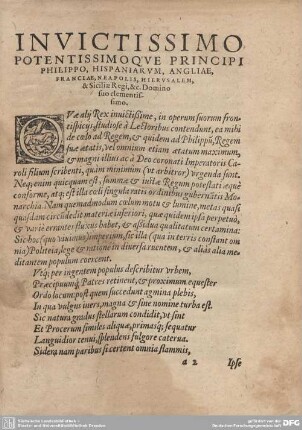 INVICTISSIMO
POTENTISSIMOQVE PRINCIPI
PHILIPPO, HISPANIARVM, ANGLIAE,
FRANCIAE, NEAPOLIS, HIERVSALEM,
& Siciliæ Regi, &c. Domino
suo clementis-
simo.
QVæ alij Rex invictissime, in operum suorum fron-
tispicijs studiose à Lectoribus contendunt, ea mihi
de cœlo ad Regem, & quidem ad Philippũ, Regem
suæ ætatis, vel omnium etiam ætatum maximum,
& magni illius ac à Deo coronati Imperatoris Ca-
roli filium scribenti, quàm minimùm (vt arbitror) vrgenda sunt.
Neq; enim quicquam est, summæ & illæ Regum potestati æquè
conforme, atq; est illa cœli singula rati ordinibus gubernantis Mo-
narchia. Nam quemadmodum cælum motu & lumine, metas quas-
quasdam circumdedit materiæ inferiori, quæ quidem ipsa perpetuò,
& varijs erroribus fluxus habet, & assidua qualitatum certamina:
Sic hoc imperium, sic illæ (quæ in terris constant om-
nia) Politeiæ, lege & ratione in diversa ruentem, & aliàs alia me-
ditantem populum coërcent.
Vtq; per ingentem populus describitur vrbem,
Præcipuumq; Patres retinent, & proximum equester
Ordo locum: post quem succedunt agmina plebis,
In qua vulgus iners, magna & sine nomine turba est.
Sic natura gradus stellarum condidit, vt sint
Et Procerum similes aliquæ, primasq; sequatur
Languidior tenui splendens fulgore caterua.
Sidera nam paribus si certent omnia flammis,
a 2 Ipse